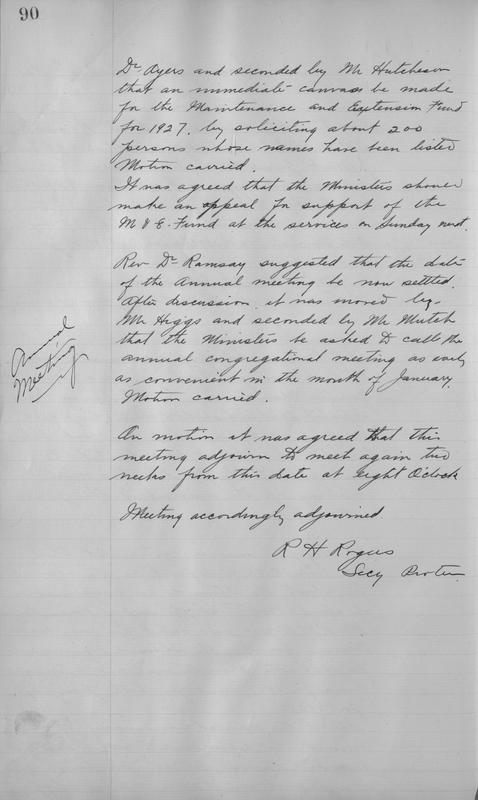 90
Dr Ayers and seconded by Mr Hutcheson
that an immediate canvass be made
for the Maintenance and Extension Fund
for 1927. by soliciting about 200
persons whose names have been listed
Motion carried.
It was agreed that the Ministers should
make an appeal for support of the
M & E. Fund at the services on Sunday next.
Rev Dr Ramsay suggested that the date
of the Annual meeting be now settled.
After discussion it was moved by
Mr Higgs and seconded by Mr Mutch
that the Ministers be asked to call the
annual congregational meeting as early
as convenient in the month of January.
Motion carried.
Annual
Meeting
On motion it was agreed that this
meeting adjourn to meet again two
weeks from this date at eight O'clock
Meeting accordingly adjourned
R H Rogers
Secy Protem